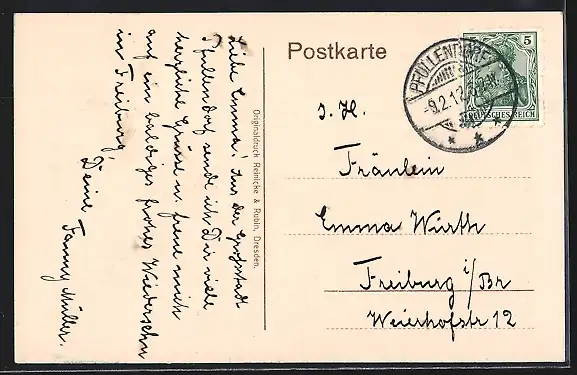 Liebe Emma! Aus der Großstadt
Pfullendorf sende ich Dir viele
herzliche Grüsse u. freue mich
auf ein baldiges frohes Wiedersehn
in Freiburg,
Deine
Fanny Müller.
Originaldruck Reinicke & Rubin, Dresden.
Postkarte
PFULLENDORF
-9.2.12.
5
DEUTSCHES REICH
S. H.
Fräulein
Emma Würth
Freiburg i/Br
Weierhofstr 12